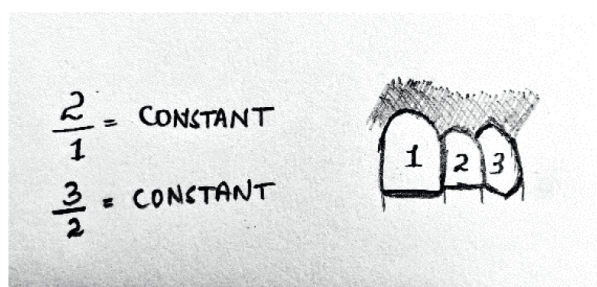 2/1 = CONSTANT
3/2 = CONSTANT
1 2 3